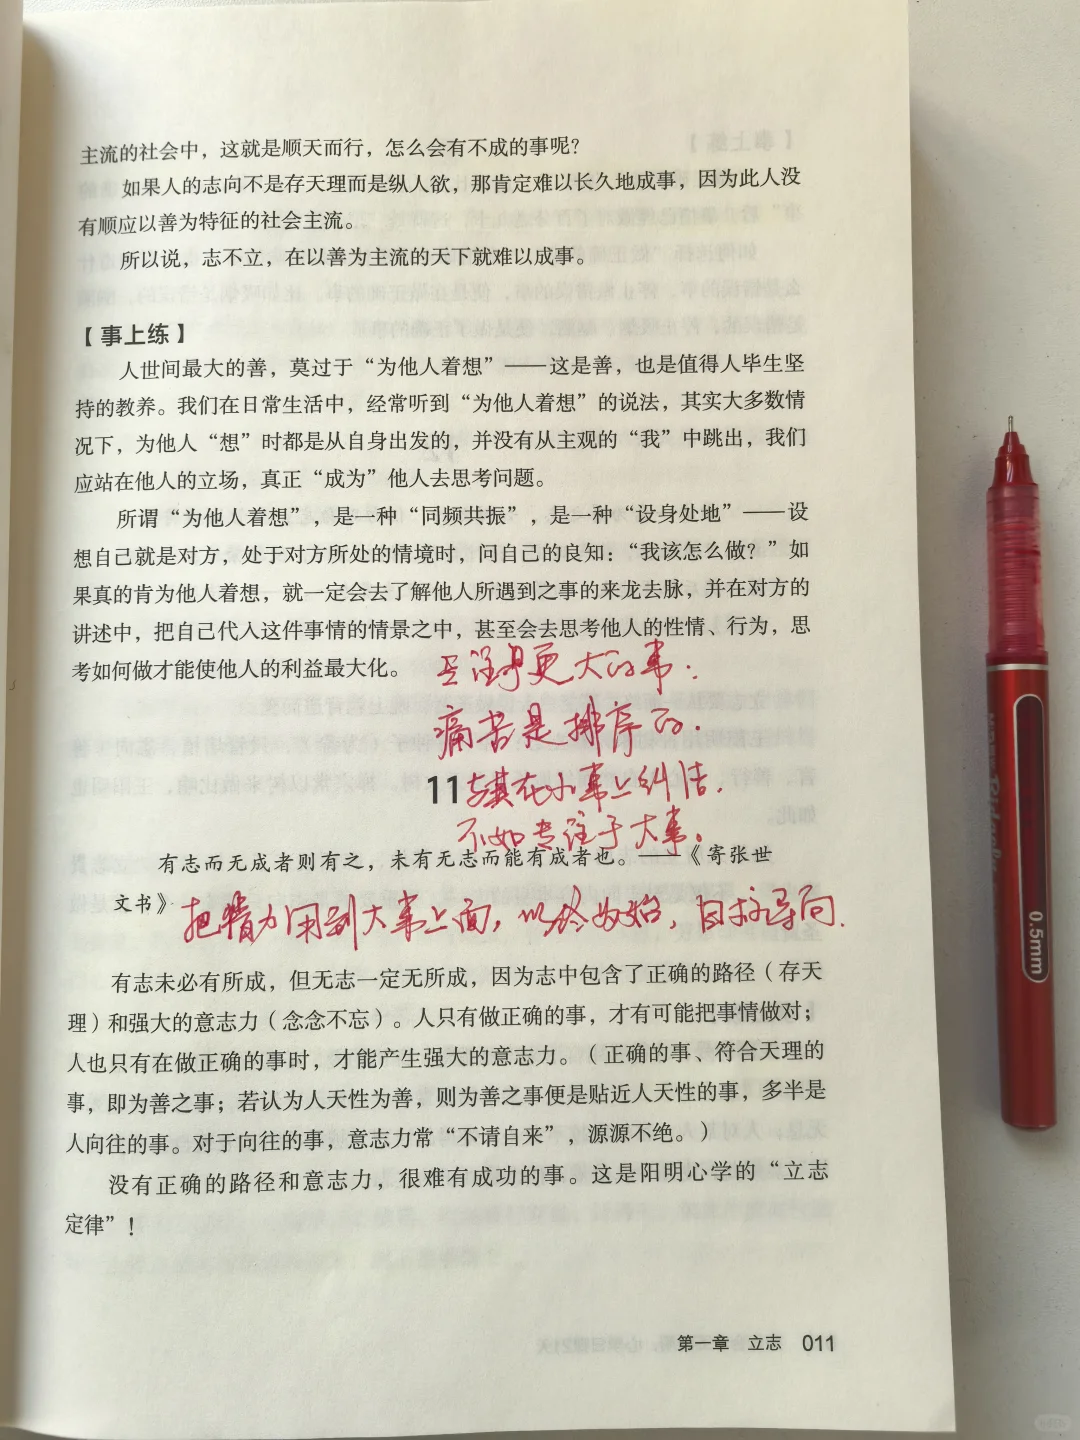 主流的社会中，这就是顺天而行，怎么会有不成的事呢？
如果人的志向不是存天理而是纵人欲，那肯定难以长久地成事，因为此人没
有顺应以善为特征的社会主流。
所以说，志不立，在以善为主流的天下就难以成事。
【事上练】
人世间最大的善，莫过于“为他人着想”——这是善，也是值得人毕生坚
持的教养。我们在日常生活中，经常听到“为他人着想”的说法，其实大多数情
况下，为他人“想”时都是从自身出发的，并没有从主观的“我”中跳出，我们
应站在他人的立场，真正“成为”他人去思考问题。
所谓“为他人着想”，是一种“同频共振”，是一种“设身处地”——设
想自己就是对方，处于对方所处的情境时，问自己的良知：“我该怎么做？”如
果真的肯为他人着想，就一定会去了解他人所遇到之事的来龙去脉，并在对方的
讲述中，把自己代入这件事情的情景之中，甚至会去思考他人的性情、行为，思
考如何做才能使他人的利益最大化。
是更大的事．
痛苦是排序的．
11
与其在小事上纠结．
不如专注于大事。
有志而无成者则有之，未有无志而能有成者也。——《寄张世
文书》
把精力用到大事上面，以终为始，目标导向．
有志未必有所成，但无志一定无所成，因为志中包含了正确的路径（存天
理）和强大的意志力（念念不忘）。人只有做正确的事，才有可能把事情做对；
人也只有在做正确的事时，才能产生强大的意志力。（正确的事、符合天理的
事，即为善之事；若认为人天性为善，则为善之事便是贴近人天性的事，多半是
人向往的事。对于向往的事，意志力常“不请自来”，源源不绝。）
没有正确的路径和意志力，很难有成功的事。这是阳明心学的“立志
定律”！
第一章 立志 011
0.5mm